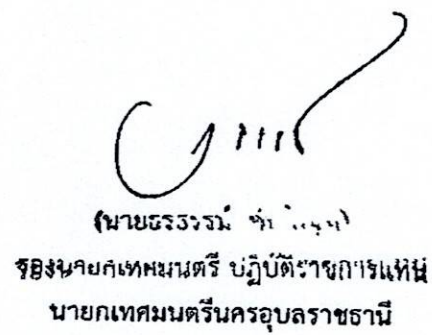 (นายธรรศวรรณ์
รองนายกเทศมนตรี ปฏิบัติราชการแทน
นายกเทศมนตรีนครอุบลราชธานี